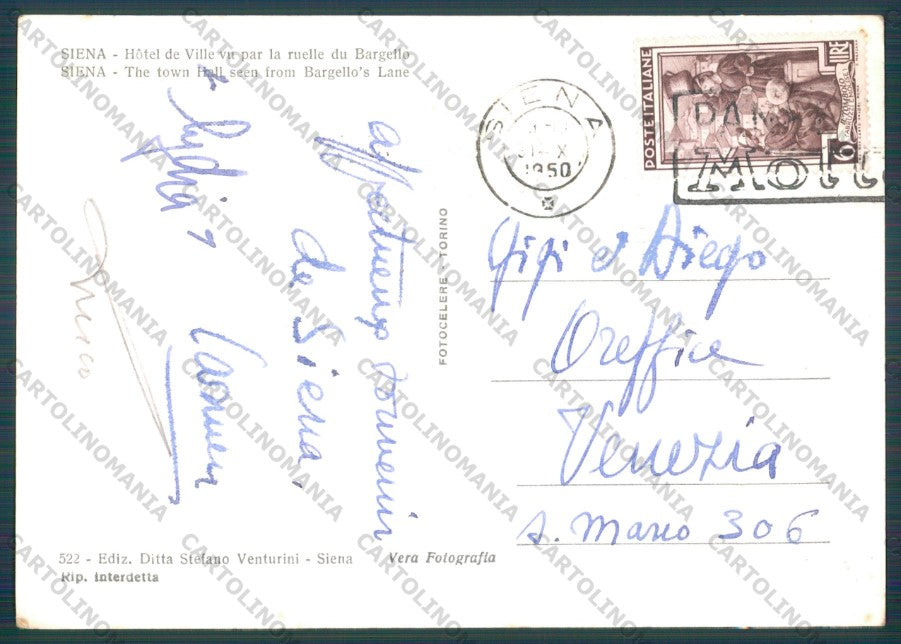 SIENA - Hôtel de Ville vu par la ruelle du Bargello
SIENA - The town Hall seen from Bargello's Lane
affettuoso souvenir
da Siena
Carmen
FOTOCELERE - TORINO
POSTE ITALIANE
LIRE
6
SIENA
X
1950
Gigi e Diego
Orefice
Venezia
S. Marco 306
522 - Ediz. Ditta Stefano Venturini - Siena
Vera Fotografia
Rip. interdetta
CARTOLINOMANIA